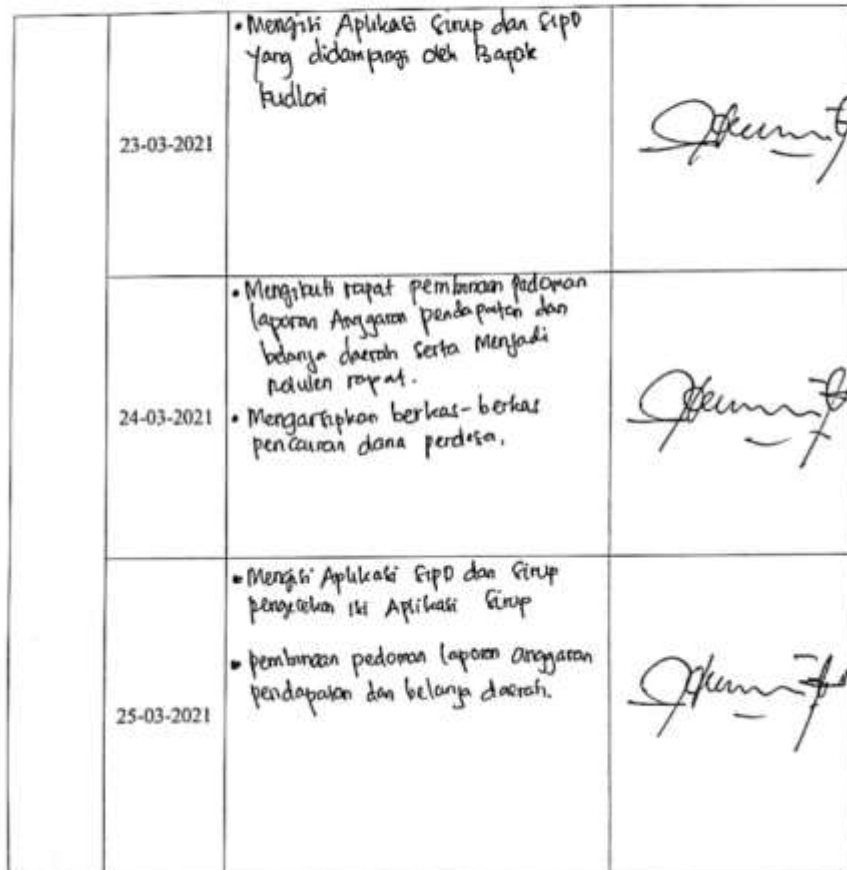 • Mengisi Aplikasi Sirup dan SIPD
yang didampingi oleh Bapak
kudlori
23-03-2021
• Mengikuti rapat pembinaan pedoman
laporan Anggaran pendapatan dan
belanja daerah serta Menjadi
notulen rapat.
24-03-2021
• Mengarsipkan berkas-berkas
pencairan dana perdesa.
• Mengisi Aplikasi SIPD dan Sirup
pengecekan isi Aplikasi Sirup
• pembinaan pedoman laporan anggaran
pendapatan dan belanja daerah.
25-03-2021